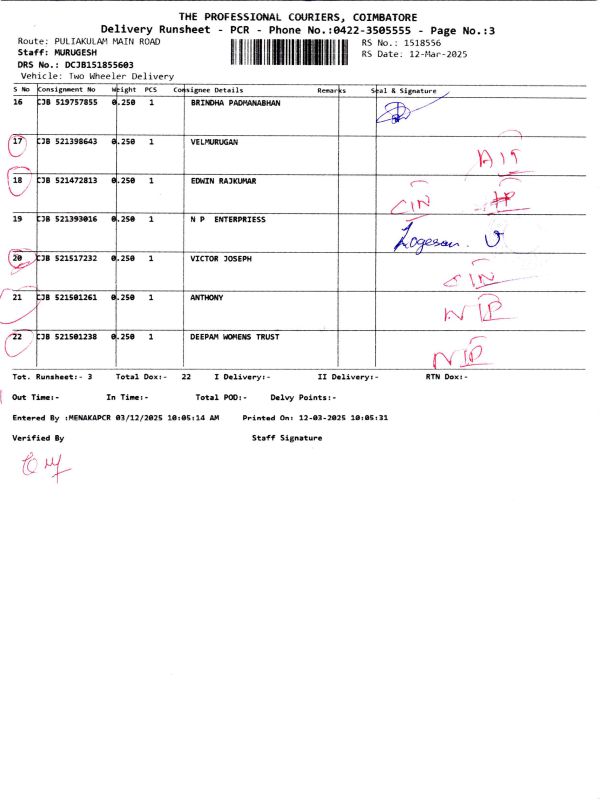 THE PROFESSIONAL COURIERS, COIMBATORE
Delivery Runsheet - PCR - Phone No.:0422-3505555 - Page No.:3
Route: PULIAKULAM MAIN ROAD RS No.: 1518556
Staff: MURUGESH RS Date: 12-Mar-2025
DRS No.: DCJB151855603
Vehicle: Two Wheeler Delivery
S No Consignment No Weight PCS Consignee Details Remarks Seal & Signature
16 CJB 519757855 0.250 1 BRINDHA PADMANABHAN
17 CJB 521398643 0.250 1 VELMURUGAN
18 CJB 521472813 0.250 1 EDWIN RAJKUMAR CIN
19 CJB 521393016 0.250 1 N P ENTERPRIESS Logesan. V
20 CJB 521517232 0.250 1 VICTOR JOSEPH CIN
21 CJB 521501261 0.250 1 ANTHONY NIP
22 CJB 521501238 0.250 1 DEEPAM WOMENS TRUST NIP
Tot. Runsheet:- 3 Total Dox:- 22 I Delivery:- II Delivery:- RTN Dox:-
Out Time:- In Time:- Total POD:- Delvy Points:-
Entered By :MENAKAPCR 03/12/2025 10:05:14 AM Printed On: 12-03-2025 10:05:31
Verified By Staff Signature